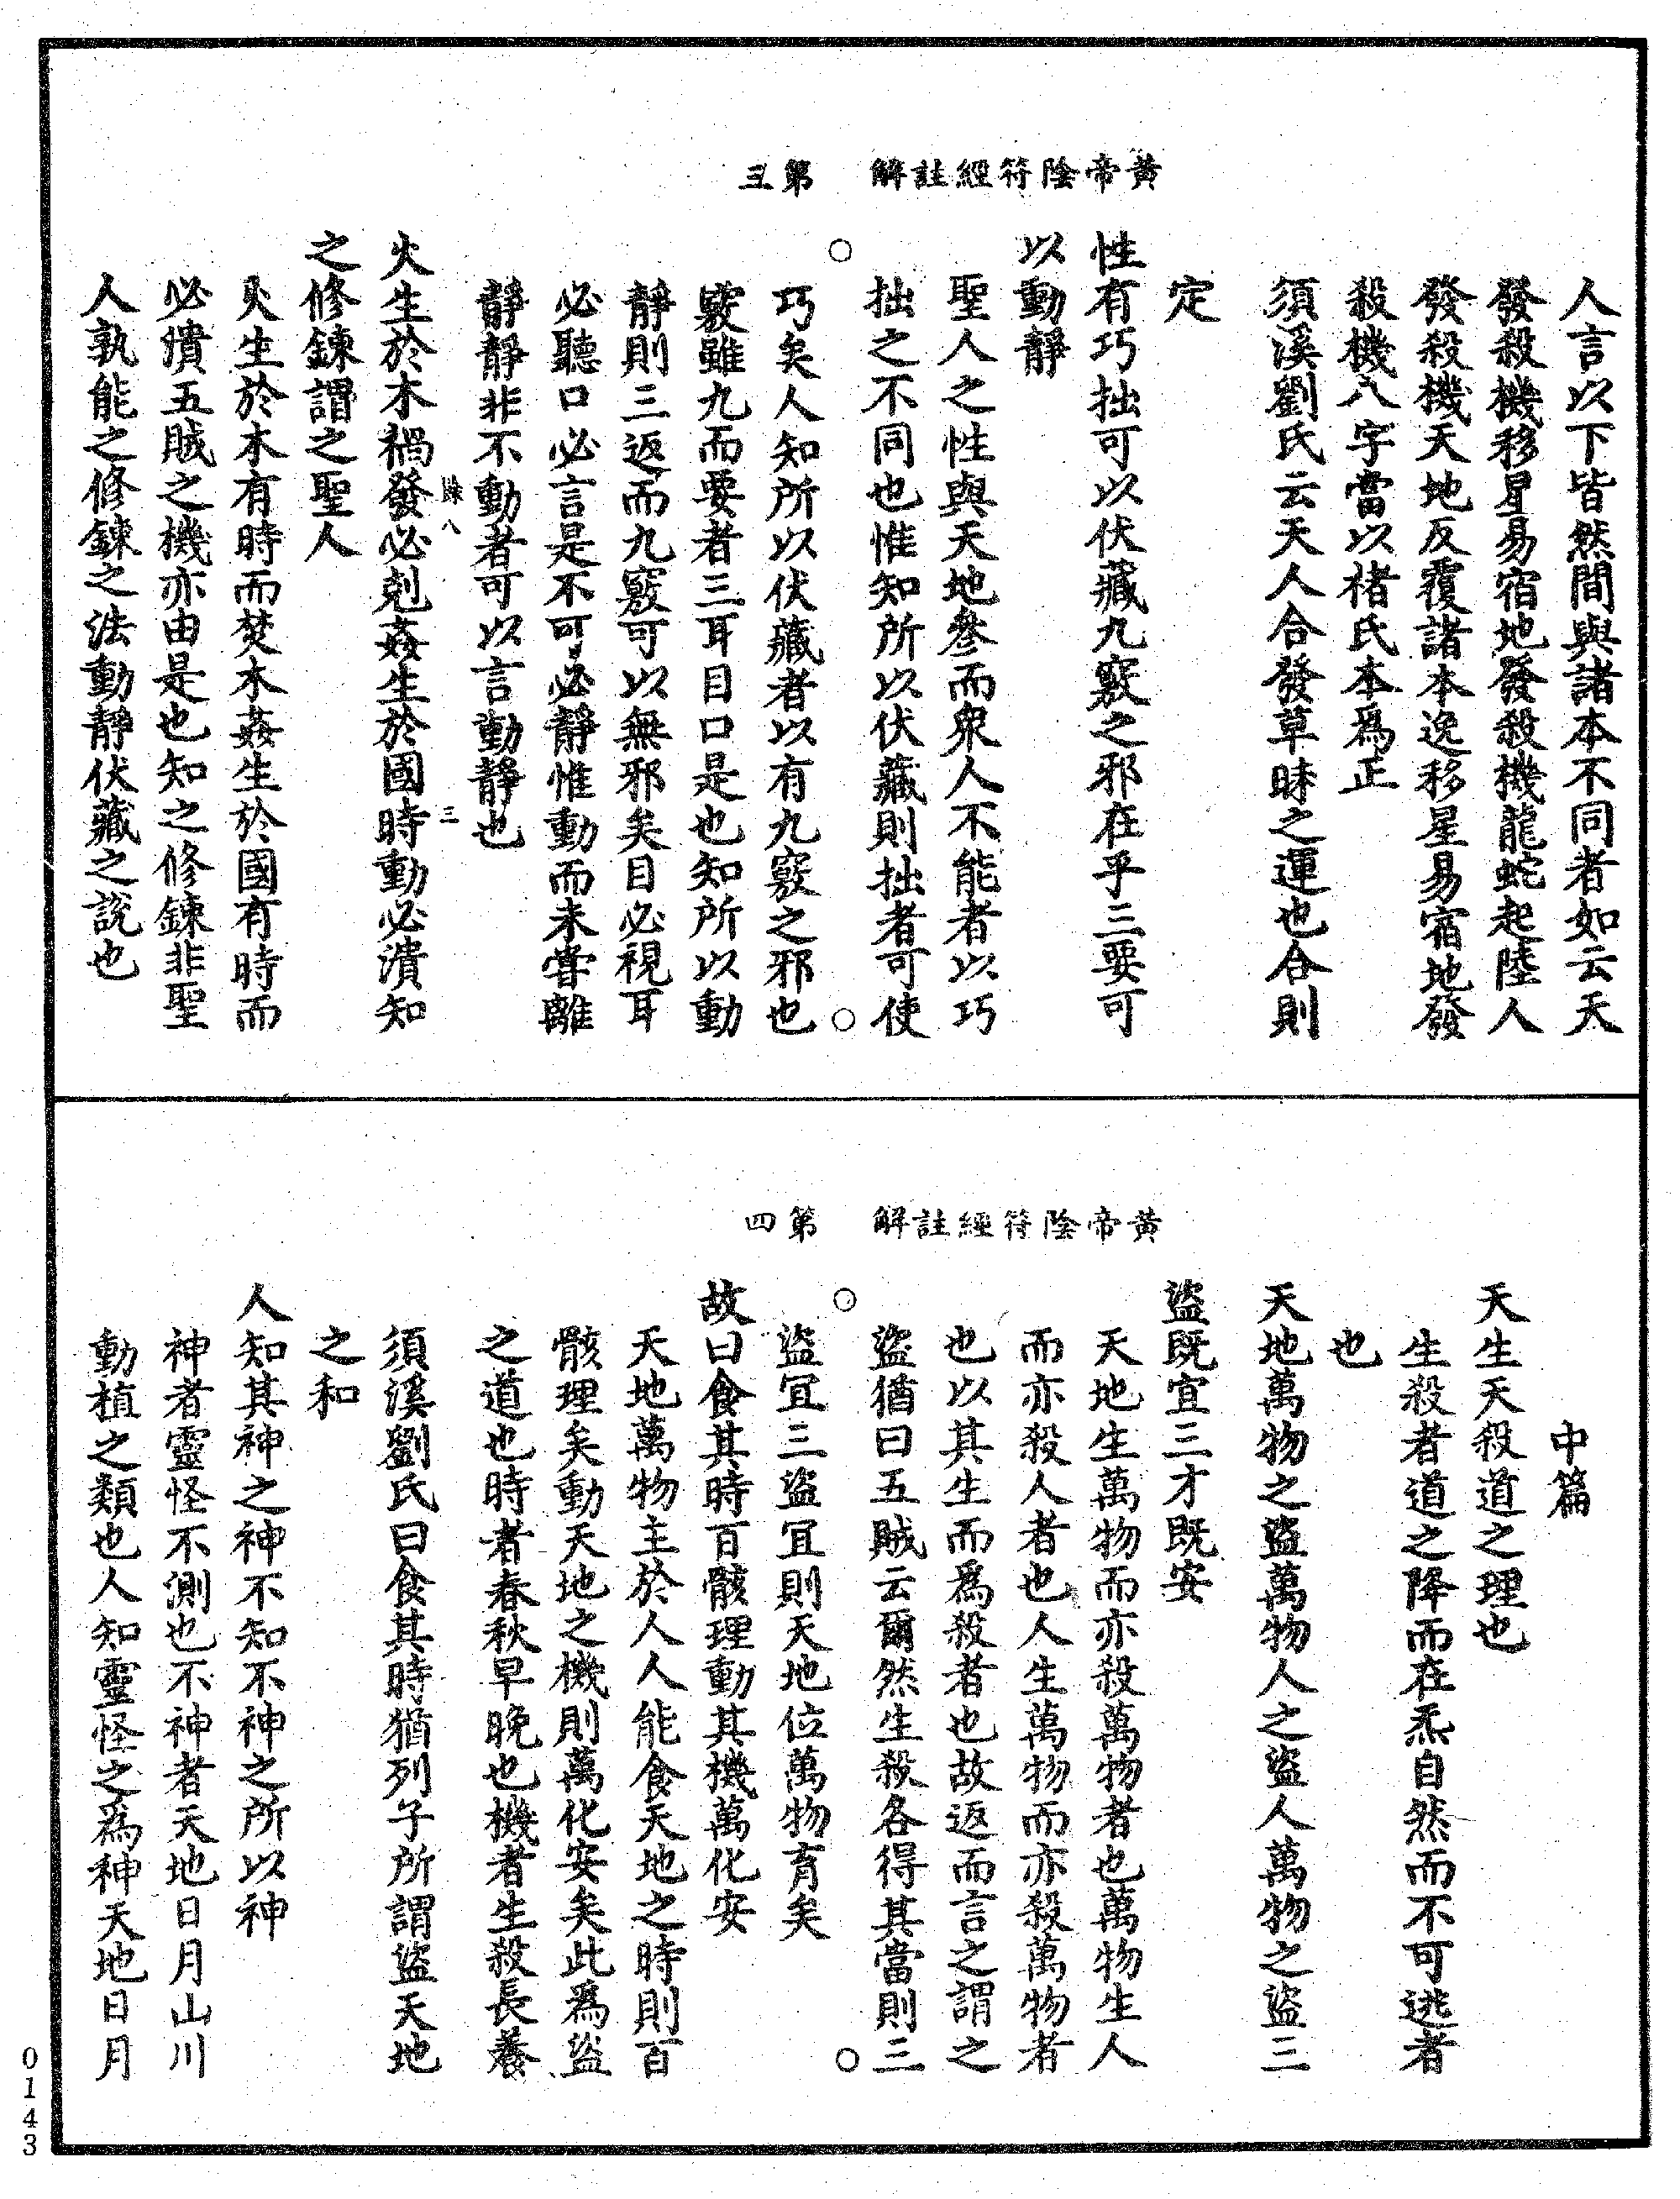 黃帝陰符經註解　第三
人言以下皆然間與諸本不同者如云天
發殺機移星易宿地發殺機龍蛇起陸人
發殺機天地反覆諸本逸移星易宿地發
殺機八字當以褚氏本爲正
須溪劉氏云天人合發草昧之運也合則
定
性有巧拙可以伏藏九竅之邪在乎三要可
以動靜
聖人之性與天地參而衆人不能者以巧
拙之不同也惟知所以伏藏則拙者可使
巧矣人知所以伏藏者以有九竅之邪也
竅雖九而要者三耳目口是也知所以動
靜則三返而九竅可以無邪矣目必視耳
必聽口必言是不可必靜惟動而未嘗離
靜靜非不動者可以言動靜也
八　三
火生於木禍發必剋姦生於國時動必潰知
之修鍊謂之聖人
火生於木有時而焚木姦生於國有時而
必潰五賊之機亦由是也知之修鍊非聖
人孰能之修鍊之法動靜伏藏之說也
黃帝陰符經註解　第四
中篇
天生天殺道之理也
生殺者道之降而在炁自然而不可逃者
也
天地萬物之盜萬物人之盜人萬物之盜三
盜既宜三才既安
天地生萬物而亦殺萬物者也萬物生人
而亦殺人者也人生萬物而亦殺萬物者
也以其生而爲殺者也故返而言之謂之
盜猶曰五賊云爾然生殺各得其當則三
盜宜三盜宜則天地位萬物育矣
故曰食其時百骸理動其機萬化安
天地萬物主於人人能食天地之時則百
骸理矣動天地之機則萬化安矣此爲盜
之道也時者春秋早晚也機者生殺長養
須溪劉氏曰食其時猶列子所謂盜天地
之和
人知其神之神不知不神之所以神
神者靈怪不測也不神者天地日月山川
動植之類也人知靈怪之爲神天地日月
0143